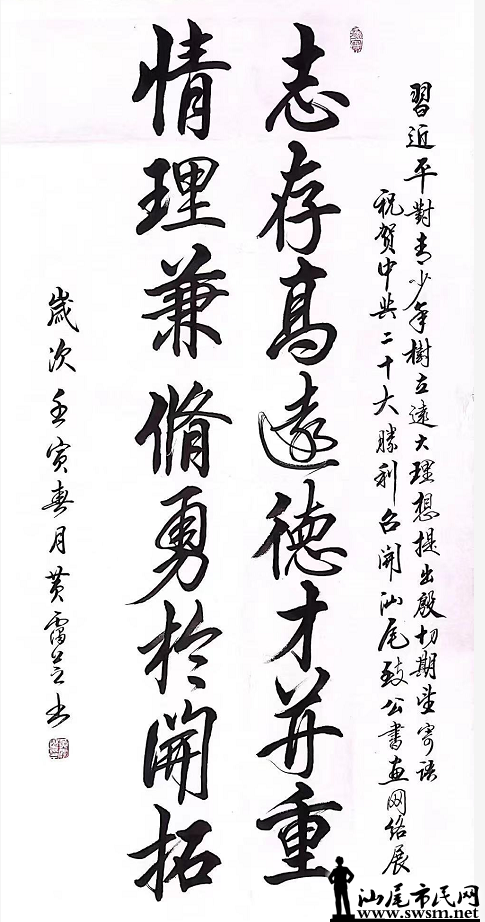 習近平對青少年樹立遠大理想提出殷切期望寄语
祝賀中共二十大勝利召開汕尾致公書画网络展
志存高遠德才并重
情理兼脩勇於開拓
歲次壬寅春月黄雷芝书
汕尾市民网
www.swsm.net